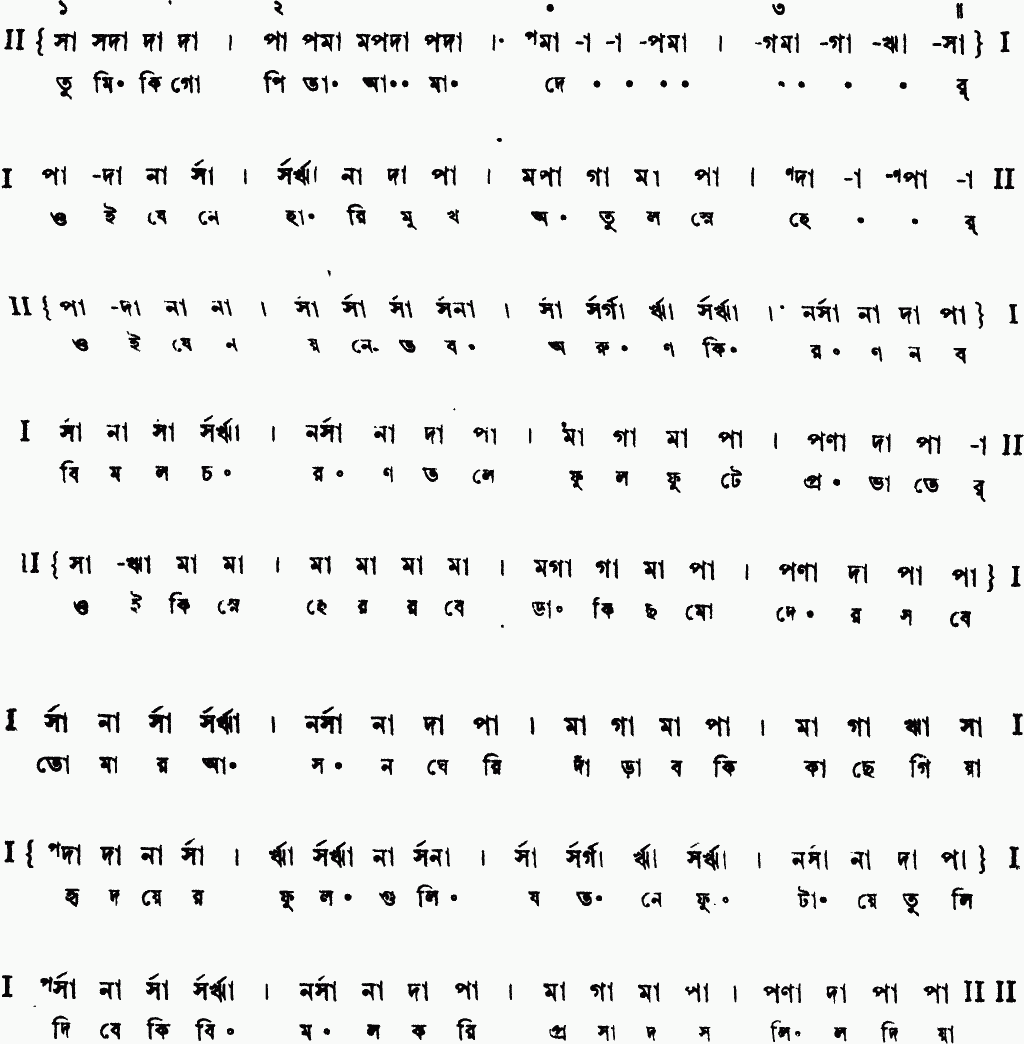 ১ ২ • ৩ ॥
II { সা সদা দা দা । পা পমা মপদা পদা । ᵖমা -া -া -পমা । -গমা -গা -ঋা -সা } I
তু মি• কি গো পি তা• আ•• মা• দে • • • • • • • • র্
I পা -দা না র্সা । র্সর্ঋা না দা পা । মপা গা মা পা । ণদা -া -ণপা -া II
ও ই যে নে হা• রি মু খ অ• তু ল স্নে হে • • র্
II { পা -দা না না । র্সা র্সা র্সা র্সনা । র্সা র্সর্গা র্ঋা র্সর্ঋা । নর্সা না দা পা } I
ও ই যে ন য় নে ত ব• অ রু• ণ কি• র• ণ ন ব
I র্সা না র্সা র্সর্ঋা । নর্সা না দা পা । মা গা মা পা । পণা দা পা -া II
বি ম ল চ• র• ণ ত লে ফু ল ফু টে প্র• ভা তে র্
II { সা -ঋা মা মা । মা মা মা মা । মগা গা মা পা । পণা দা পা পা } I
ও ই কি স্নে হে র র বে ডা• কি ছ মো দে• র স বে
I র্সা না র্সা র্সর্ঋা । নর্সা না দা পা । মা গা মা পা । মা গা ঋা সা I
তো মা র আ• স• ন ঘে রি দাঁ ড়া ব কি কা ছে গি য়া
I { পদা দা না র্সা । র্ঋা র্সর্ঋা না র্সনা । র্সা র্সর্গা র্ঋা র্সর্ঋা । নর্সা না দা পা } I
হৃ দ য়ে র ফু ল• গু লি• য ত• নে ফু• টা• য়ে তু লি
I পর্সা না র্সা র্সর্ঋা । নর্সা না দা পা । মা গা মা পা । পণা দা পা পা II II
দি বে কি বি• ম• ল ক রি প্র সা দ স লি• ল দি য়া